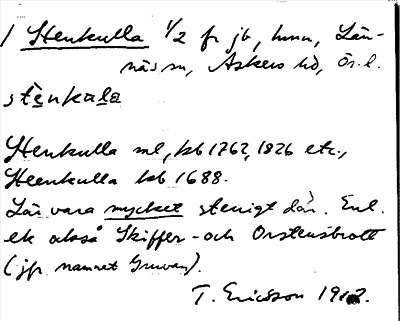 / Stenkulla 1/2 fr jb, hmn, Län-
näs sn, Askers hd, Ör. l.
stènkala
Stenkulla ml, kb 1762, 1826 etc.,
Steenkulla kb 1688.
Lär vara mycket stenigt där. Enl.
ek också Skiffer- och Orstensbrott
(jfr namnet Gruvan).
T. Ericsson 1912.